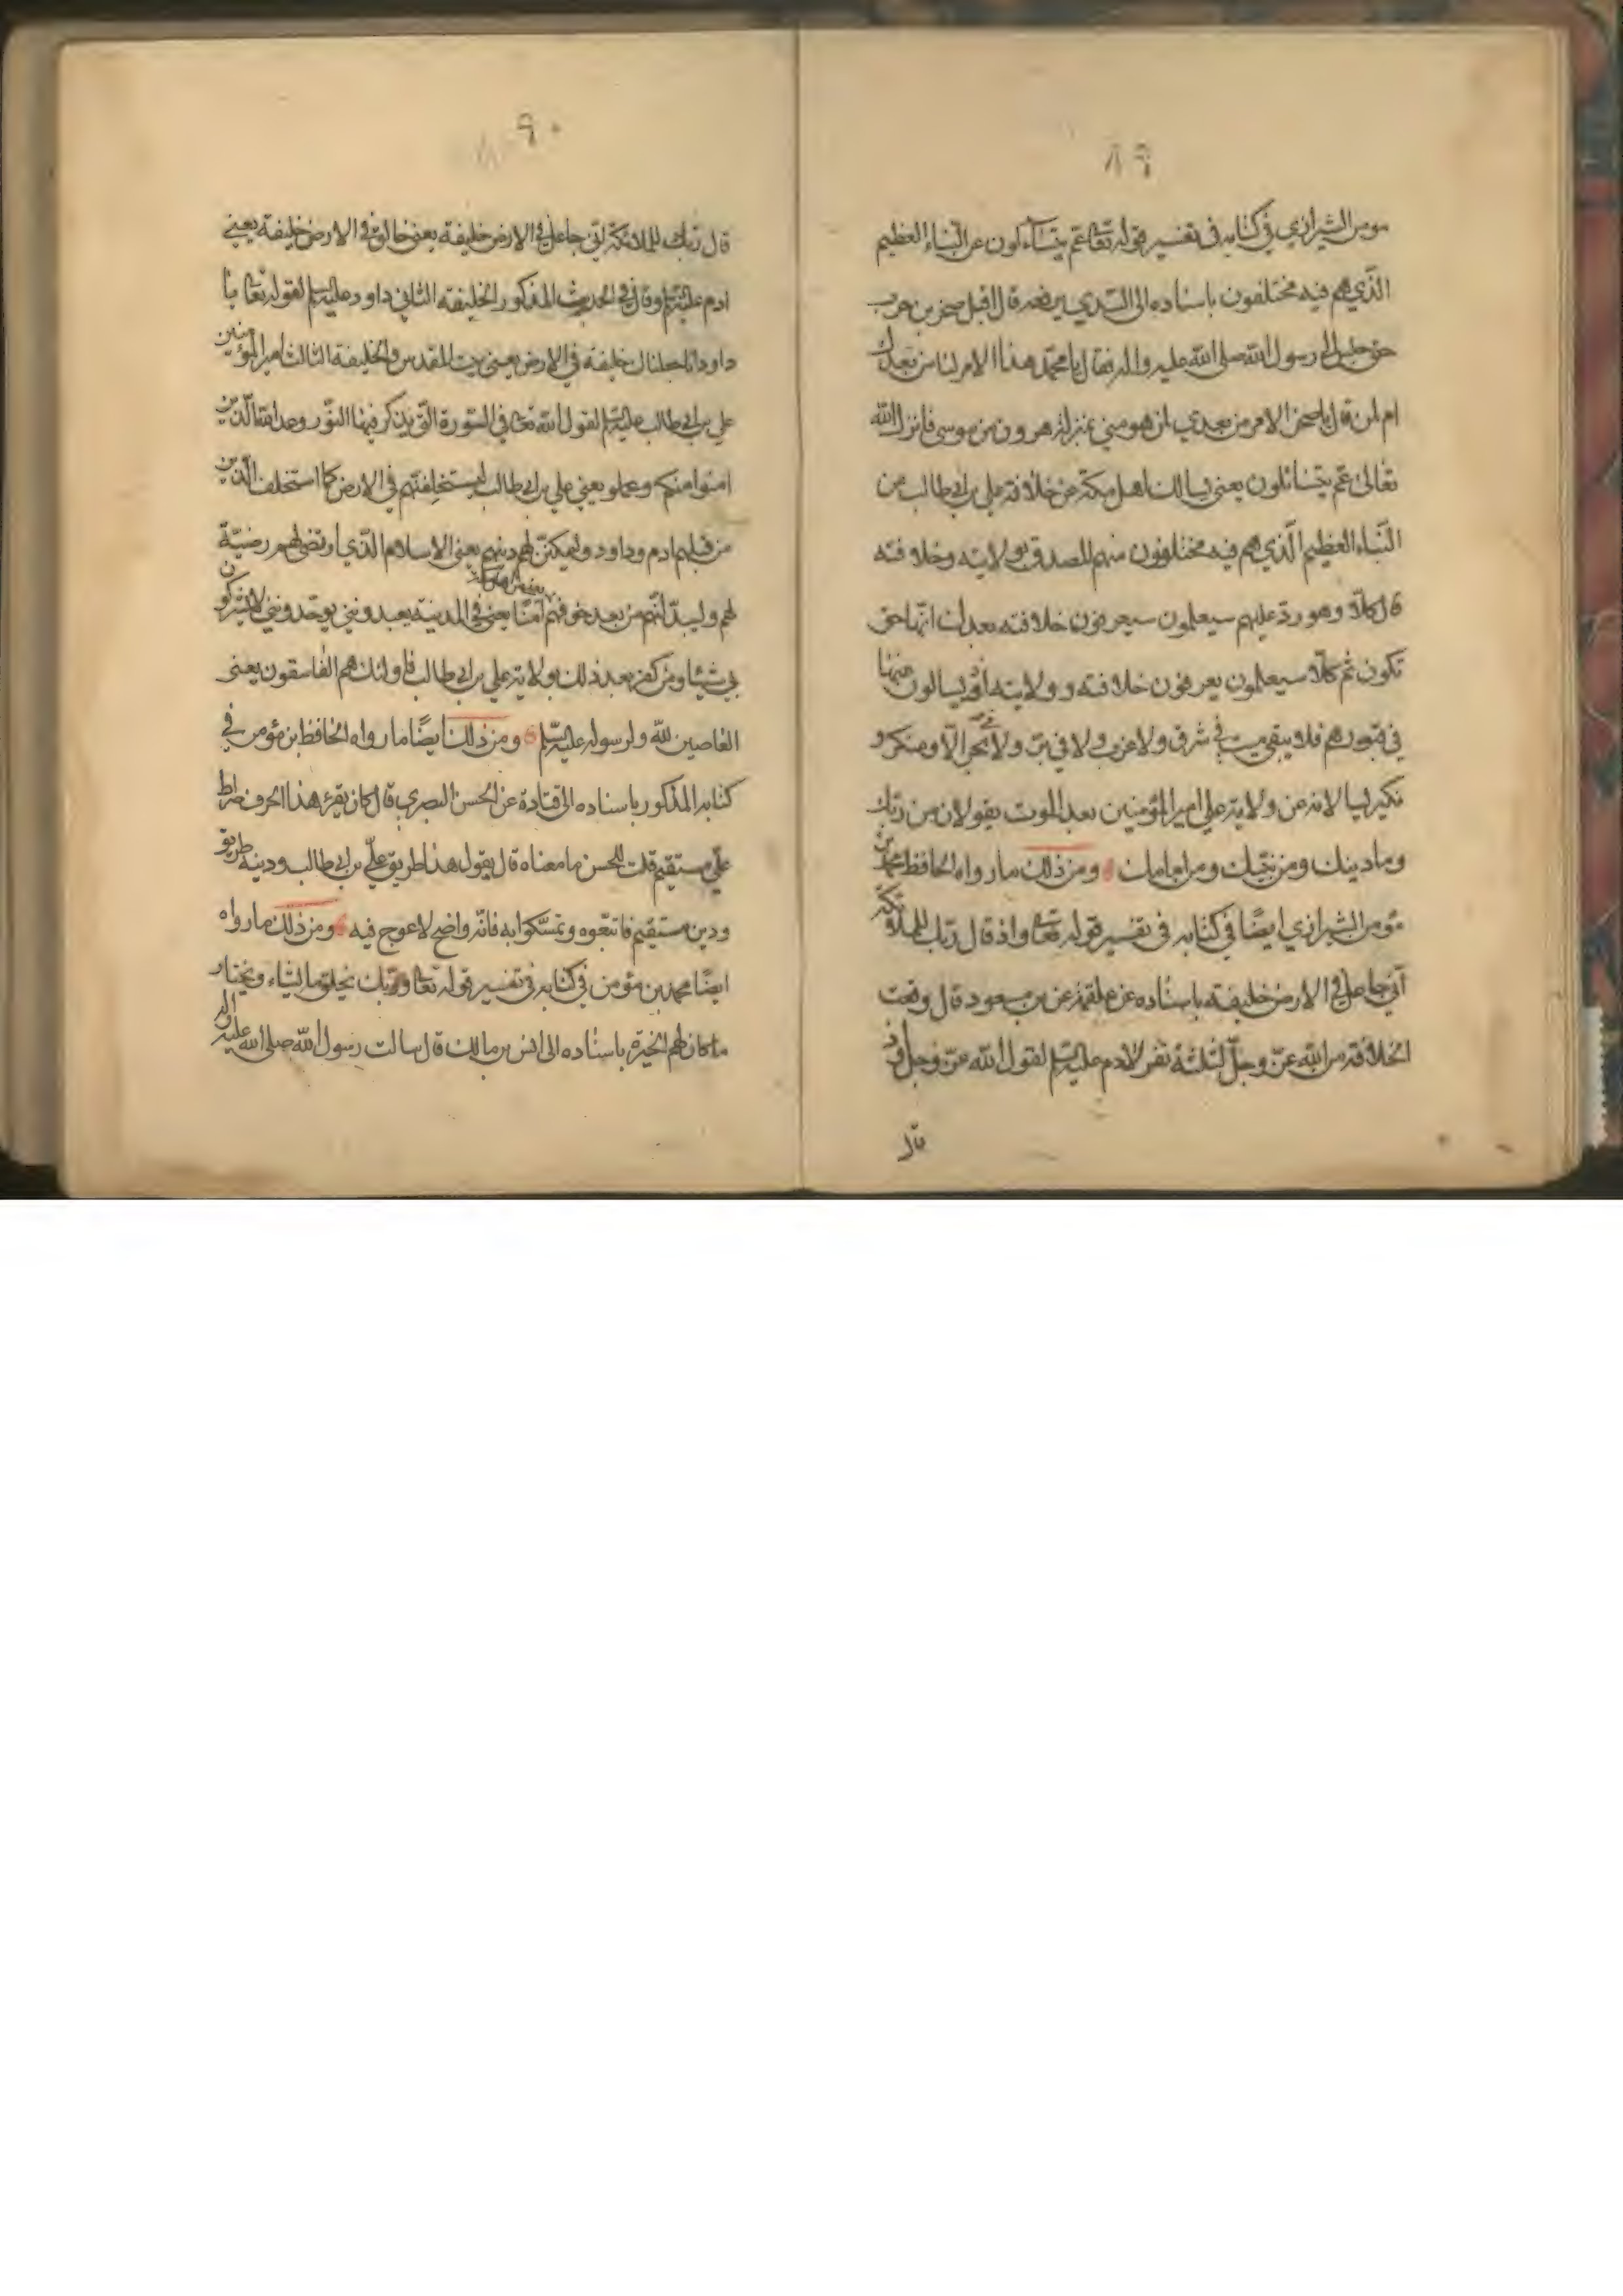 ٨٩
مومن الشيرازي في كتابه في تفسير قوله تعا عم يتسآءلون عن النباء العظيم
الذي هم فيه مختلفون باسناده الى السدي يرفعه قال اقبل صخر بن حرب
حتى جلس الى رسول الله صلى الله عليه واله فقال يا محمد هذا الامر لنا من بعدك
ام لمن قال يا صخر الامر من بعدي لمن هو مني بمنزلة هرون من موسى فانزل الله
تعالى عم يتسائلون يعني يسالك اهل مكة عن خلافة علي بن ابي طالب عن
النباء العظيم الذي هم فيه مختلفون منهم المصدق بولايته وخلافته
قال كلا وهو رد عليهم سيعلمون سيعرفون خلافته بعدك انها حق
تكون ثم كلا سيعلمون يعرفون خلافته و ولايته اذ يسالون عنها
في قبورهم فلا يبقى ميت في شرق ولا غرب ولا في بر ولا في بحر الا ومنكر و
نكير يسالانه عن ولاية علي امير المؤمنين بعد الموت يقولان من ربك
وما دينك ومن نبيك ومن امامك ومن ذلك ما رواه الحافظ محمد بن
مؤمن الشيرازي ايضًا في كتابه في تفسير قوله تعا واذ قال ربك للملائكة
اني جاعل في الارض خليفة باسناده عن علقمة عن بن مسعود قال وقعت
الخلافة من الله عز وجل لثلثة نفر لادم عليه السلم لقول الله عز وجل واذ
قال
٩٠
قال ربك للملائكة اني جاعل في الارض خليفة يعني خالق في الارض خليفة يعني
ادم عليه السلم وقال في الحديث المذكور الخليفة الثاني داود عليه السلم لقوله تعا يا
داود انا جعلناك خليفة في الارض يعني بيت المقدس والخليفة الثالث امير المؤمنين
علي بن ابي طالب عليه السلم لقول الله تعا في السورة التي يذكر فيها النور وعد الله الذين
امنوا منكم وعملو يعني علي بن ابي طالب ليستخلفنهم في الارض كما استخلف الذين
من قبلهم ادم وداود وليمكنن لهم دينهم يعني الاسلام الذي ارتضى لهم رضيه
لهم وليبدلنهم من بعد خوفهم يعني اهل مكة امنا يعني في المدينة يعبدونني يوحدونني لا يشركون
بي شيئا ومن كفر بعد ذلك بولاية علي بن ابي طالب فاولئك هم الفاسقون يعني
العاصين لله ولرسوله عليه السلم ومن ذلك ايضًا ما رواه الحافظ بن مؤمن في
كتابه المذكور باسناده الى قتادة عن الحسن البصري قال كان يقرء هذا الحرف صراط
علي مستقيم قلت للحسن ما معناه قال يقول هذا طريق علي بن ابي طالب ودينه طريق
ودين مستقيم فاتبعوه وتمسكوا به فانه واضح لا عوج فيه ومن ذلك ما رواه
ايضًا محمد بن مؤمن في كتابه في تفسير قوله تعا وربك يخلق ما يشاء ويختار
ما كان لهم الخيرة باسناده الى انس بن مالك قال سالت رسول الله صلى الله عليه واله